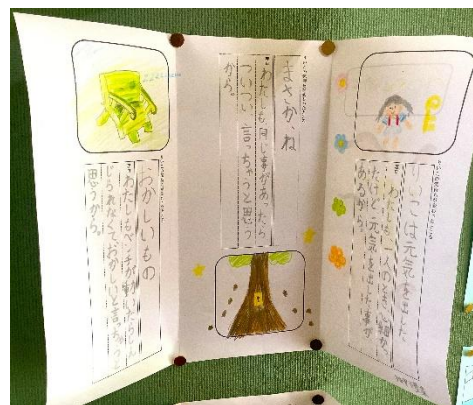 りいこは元気を出した
わたしも、一人のとき心細かっ
たけど元気を出した事が
あるから。
まさか、ね
わたしも同じ事があったら
ついつい言っちゃうと思う
から。
おかしいもの
わたしもベンチが動いたらしん
じられなくて、おかしいと言っちゃうと
思うから。